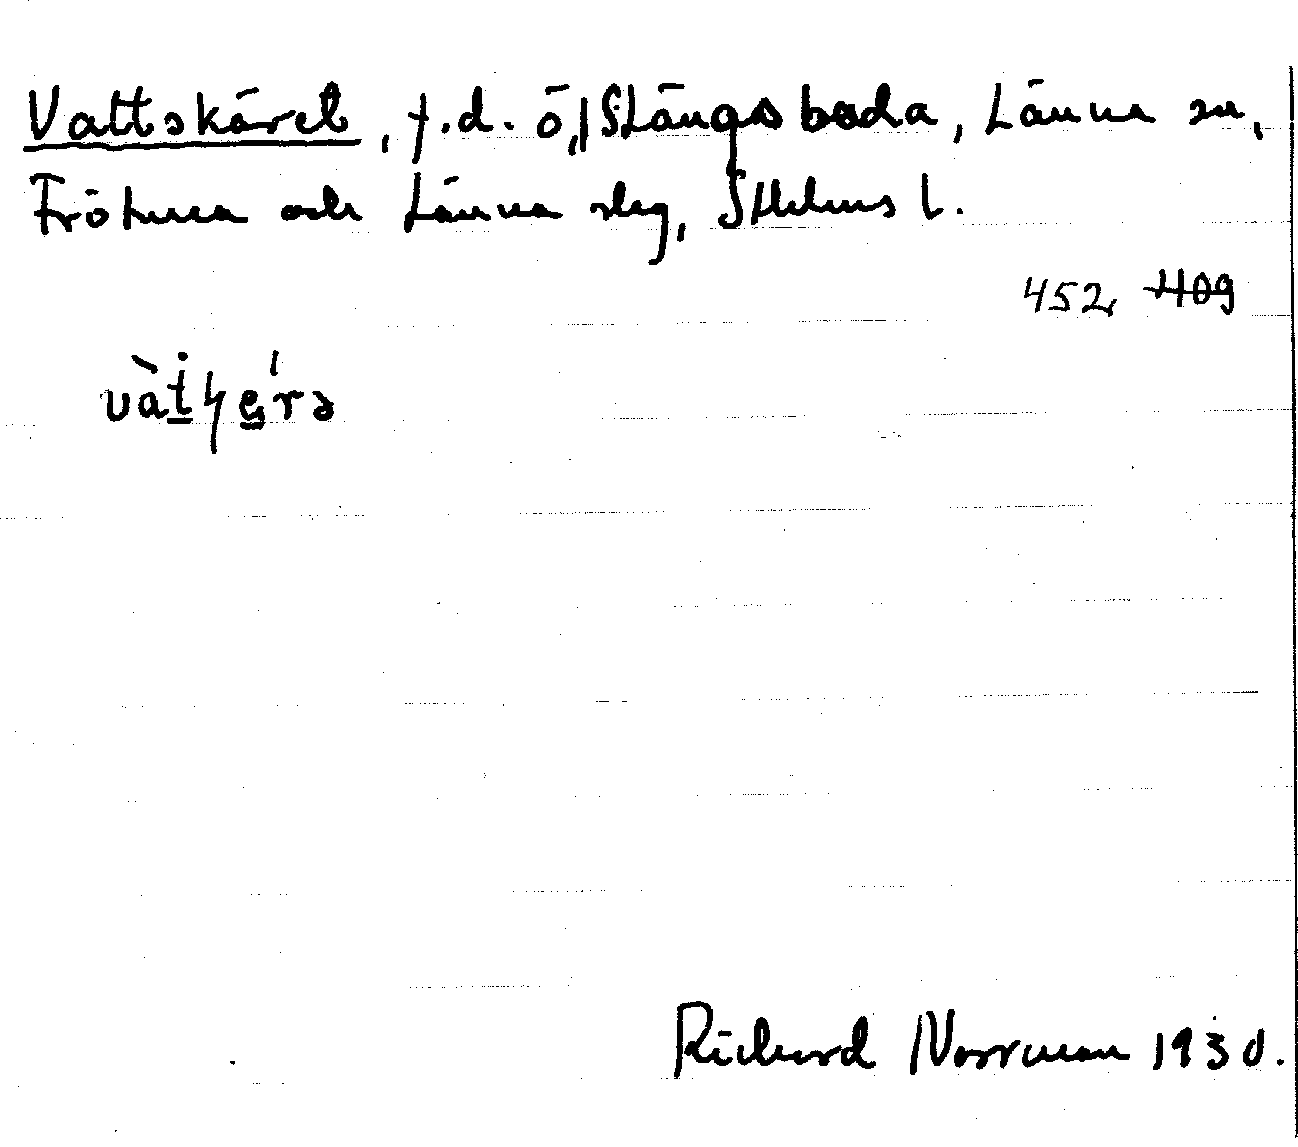 Vattskäret, f.d. ö, Stängsboda, Länna sn,
Frötuna och Länna slg, Sthlms l.
452, 409
Richard Norrman 1930.